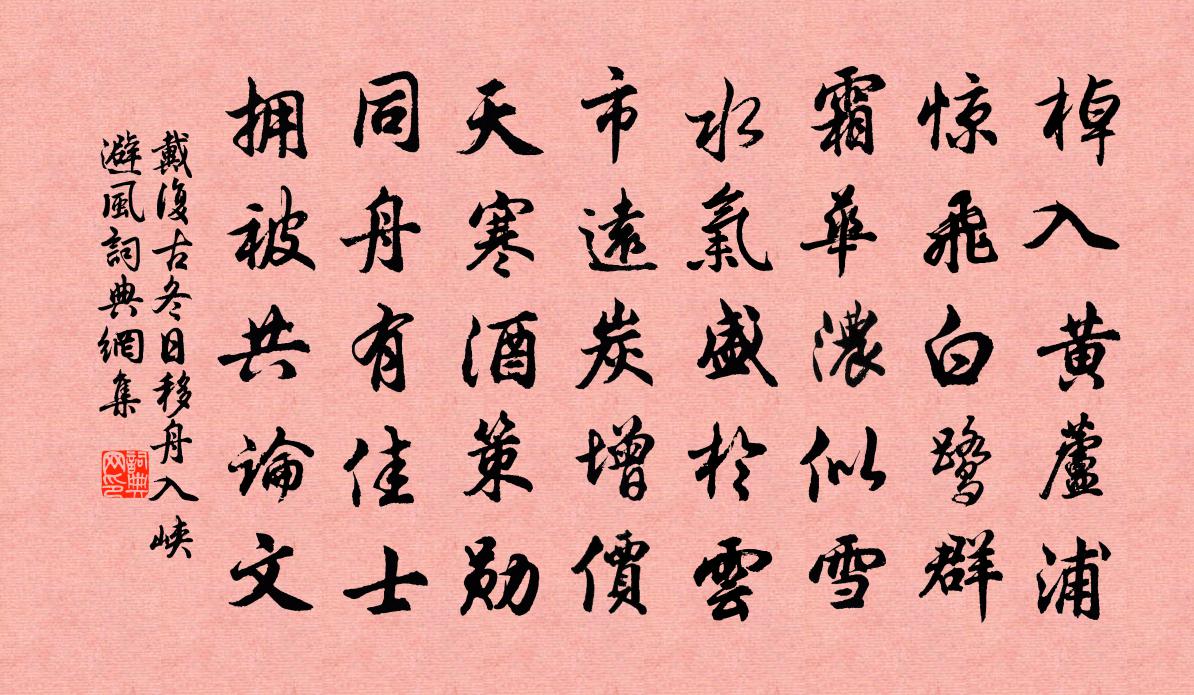 棹入黄蘆浦
惊飛白鹭群
霜華濃似雪
水氣盛於雲
市遠炭增價
天寒酒策勋
同舟有佳士
拥被共論文
戴復古冬日移舟入峽
避風詞典網集
詞典网印